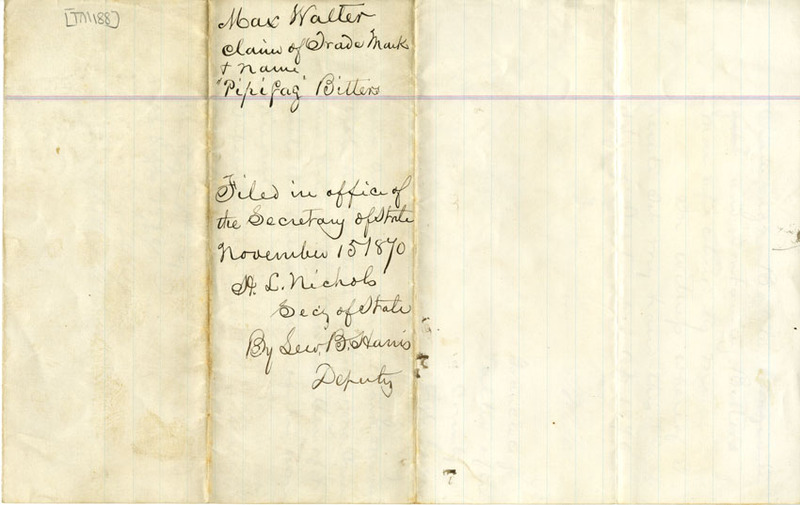 [TM188]
Max Walter
Claim of Trade Mark
& name
"Pipifax" Bitters
Filed in office of
the Secretary of State
November 15 1870
H. L. Nichols
Secy of State
By Lew. B. Harris
Deputy